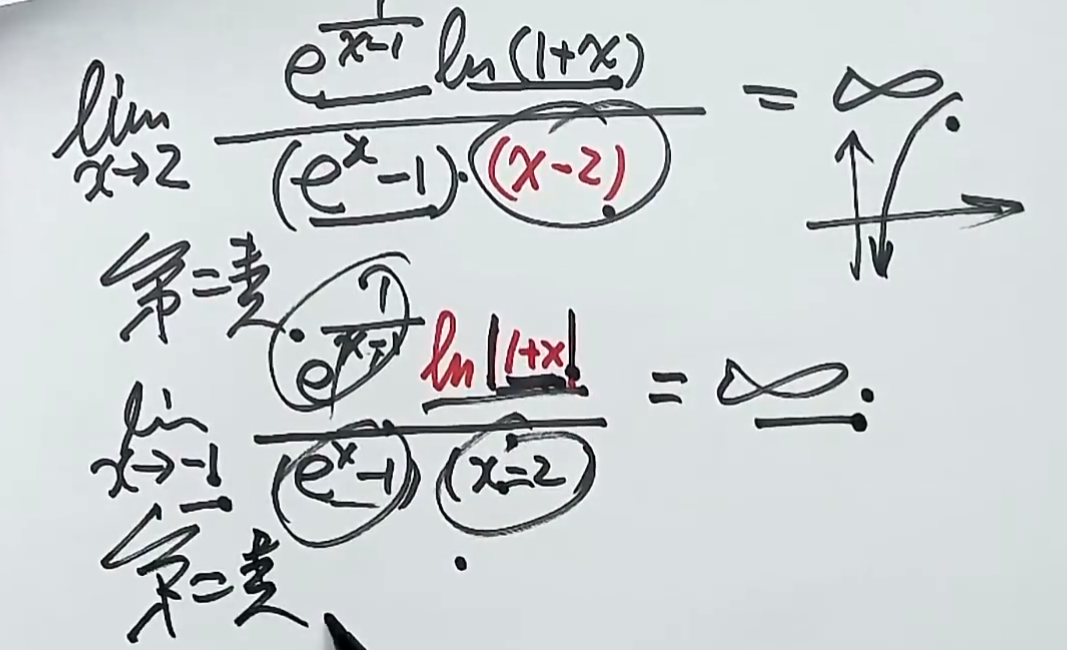 lim x→2 e^(1/(x-1)) ln(1+x) / (e^x-1)·(x-2) = ∞
第二类
lim x→-1 e^(1/(x-1)) ln|1+x| / (e^x-1)(x-2) = ∞.
第二类